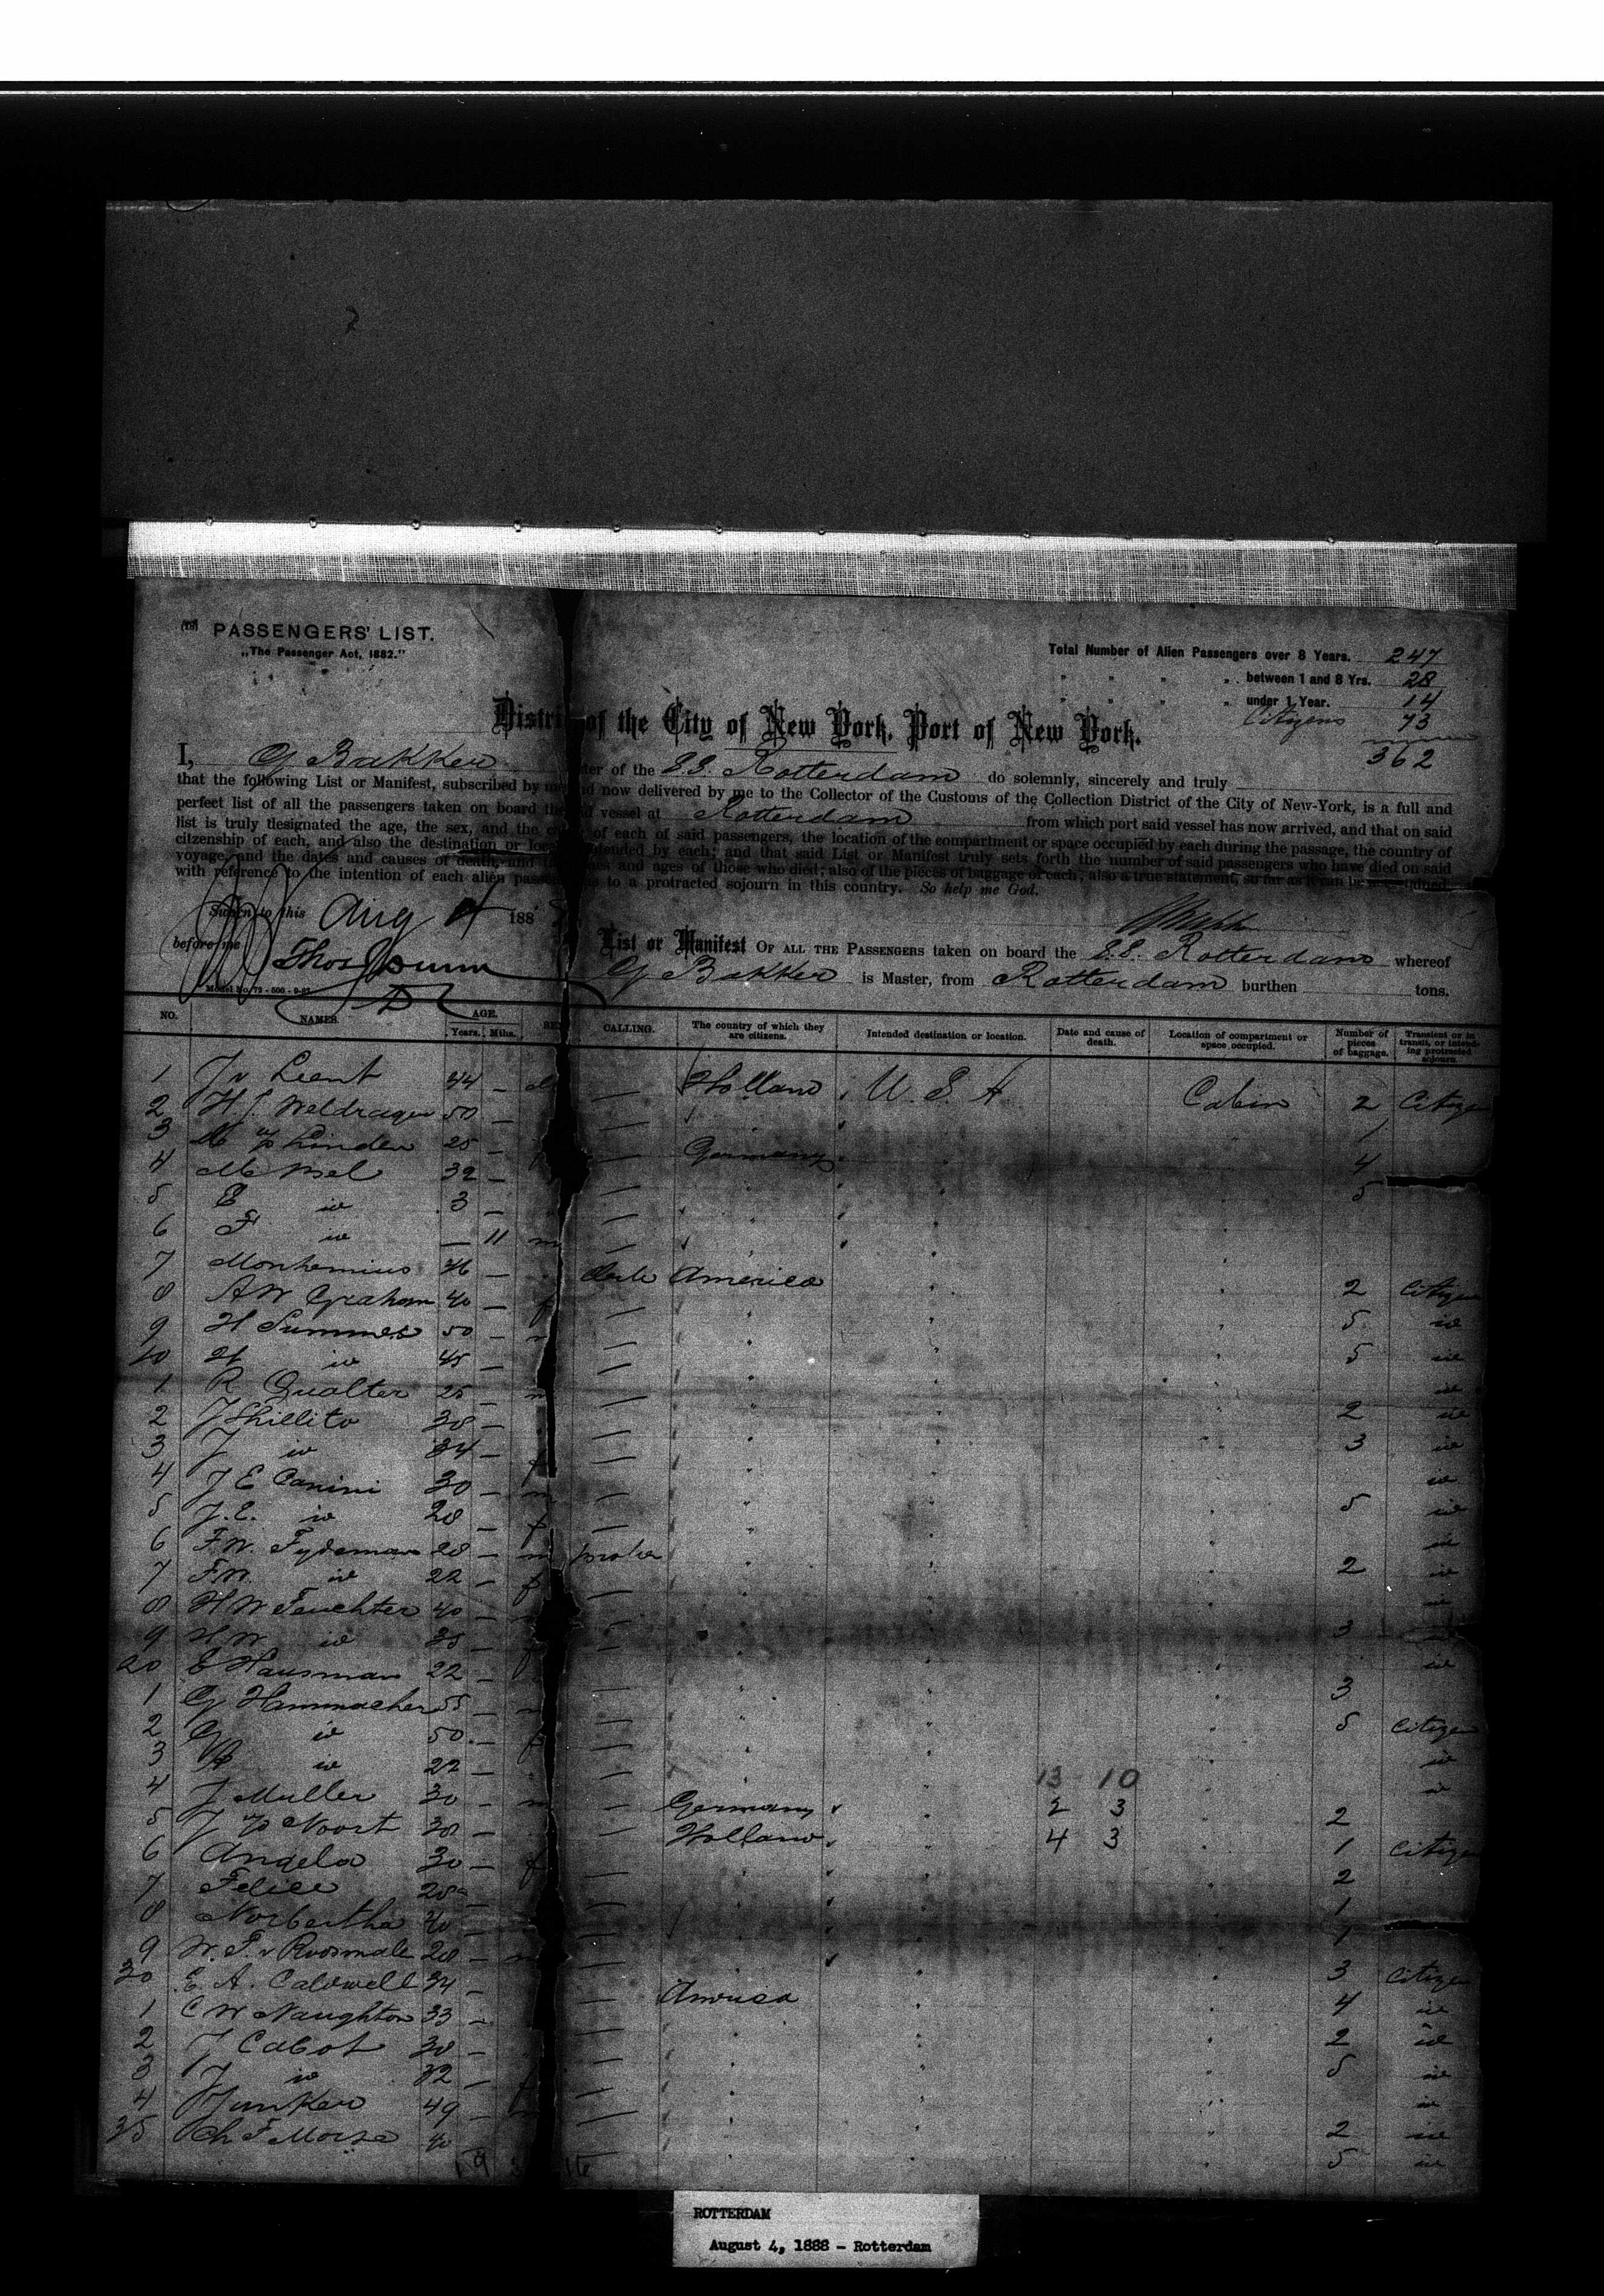 PASSENGERS' LIST.
„The Passenger Act, 1882."
Total Number of Alien Passengers over 8 Years. 247
" " " " between 1 and 8 Yrs. 28
" " " " under 1 Year. 14
Citizens 73
362
Distri of the City of New York, Port of New York.
I, G Bakker ter of the S.S. Rotterdam do solemnly, sincerely and truly
that the following List or Manifest, subscribed by me nd now delivered by me to the Collector of the Customs of the Collection District of the City of New-York, is a full and
perfect list of all the passengers taken on board the d vessel at Rotterdam from which port said vessel has now arrived, and that on said
list is truly designated the age, the sex, and the of each of said passengers, the location of the compartment or space occupied by each during the passage, the country of
citzenship of each, and also the destination or loc ntended by each; and that said List or Manifest truly sets forth the number of said passengers who have died on said
voyage, and the dates and causes of death, and t mes and ages of those who died; also of the pieces of baggage of each; also a true statement, so far as it can be
with reference to the intention of each alien passe as to a protracted sojourn in this country. So help me God.
Sworn to this Aug 4 188
before me Thos Dunn
List or Manifest OF ALL THE PASSENGERS taken on board the S.S. Rotterdam whereof
G Bakker is Master, from Rotterdam burthen tons.
NO. NAMES. AGE. Years. Mths. CALLING. The country of which they are citizens. Intended destination or location. Date and cause of death. Location of compartment or space occupied. Number of pieces of baggage. Transient or in transit, or intending protracted sojourn.
1 J v Leent 44 — — Holland U. S. A Cabin 2 Citize
2 H J. Weldrager 50 — — 1
3 Linden 25 — — Germany 4
4 32 — — 5
5 E io 3 — —
6 F io — 11 m —
7 Monhemius 36 — Clerk America 2 Citizen
8 A W Graham 40 — f — 5 io
9 H Summer 50 — m — 5 io
10 H io 45 — — io
1 R Qualter 25 m — 2 io
2 J Shillito 38 — — 3 io
3 J io 34 — f — io
4 J E Canini 30 — m — 5 io
5 J. E. io 28 — f — io
6 F. W. Tydeman 28 — m 2 io
7 F. W. io 22 — f — io
8 H W Feuchter 40 — — 3
9 H W io 35 — — io
20 E Hausman 22 — — 3
1 G Hammacher 55 — — 5 Citizen
2 G io 50 — f — io
3 io 22 — — 13 10 io
4 J Muller 30 — m — Germany 2 3 2
5 J Noort 38 — — Holland 4 3 1 Citizen
6 Angela 30 — f — 2
7 Felice 28 — 1
8 Norbertha 40 — — 1
9 W. F. v Roosmale 28 — — 3 Citizen
30 E A. Caldwell 34 — — America 4 io
1 C W Naughton 33 — — 2 io
2 J Cabot 38 — — 5 io
3 J io 32 — — io
4 Junker 49 — — 2 io
35 Ch F Morse 40 — 5 io
ROTTERDAM
August 4, 1888 - Rotterdam